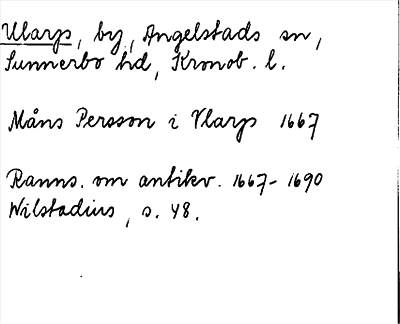 Ularp, by, Angelstads sn,
Sunnerbo hd, Kronob. l.
Måns Persson i Vlarp 1667
Ranns. om antikv. 1667-1690
Wilstadius, s. 48.